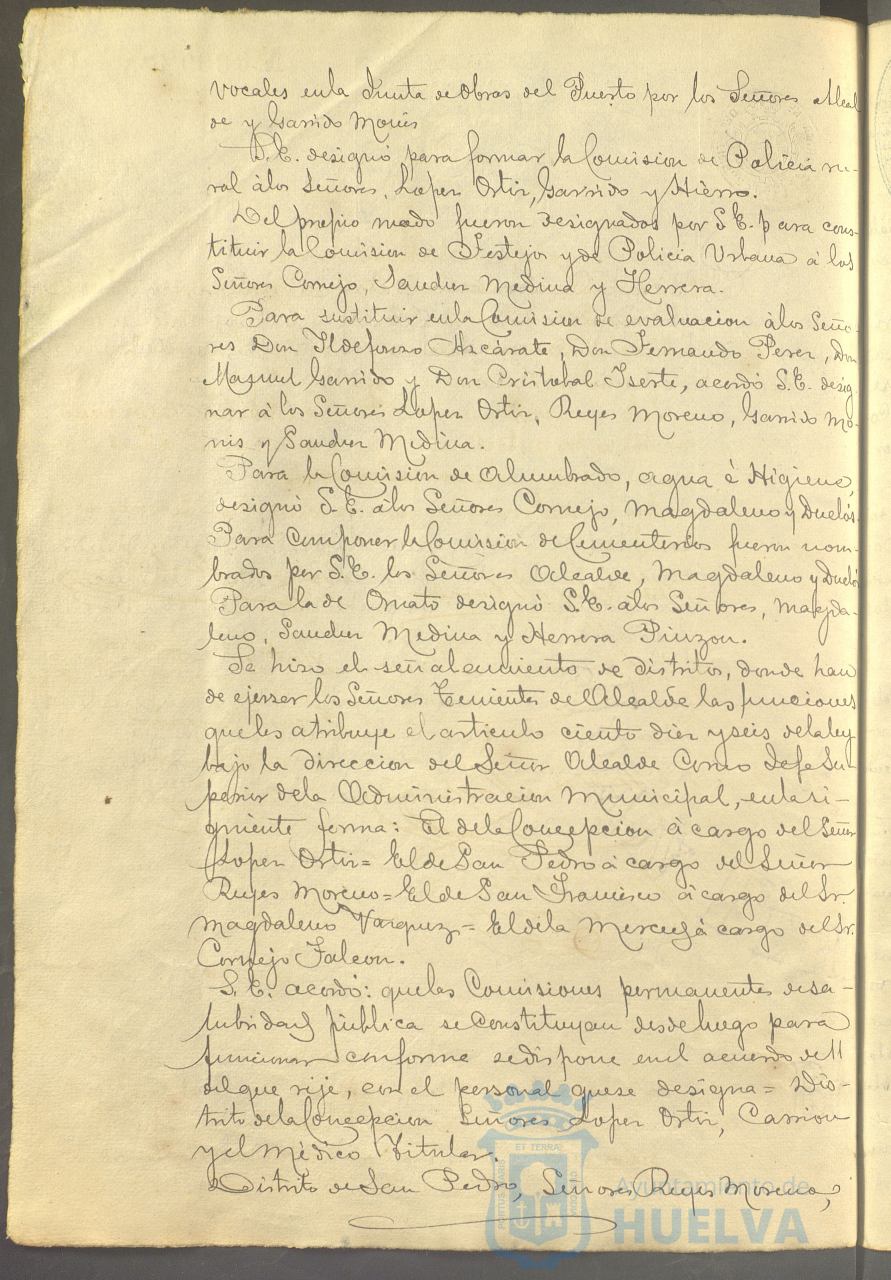 vocales en la Junta de Obras del Puerto por los Señores Alcal
de y Garrido Monís
S. E. designó para formar la Comision de Policía ru-
ral á los Señores, Lopez Ortiz, Garrido y Hierro.
Del propio modo fueron designados por S. E. para cons-
tituir la Comision de Festejos y de Policia Urbana á los
Señores Cornejo, Sanchez Medina y Herrera.
Para sustituir en la Comision de evaluacion á los Seño-
res Don Ildefonso Azcárate, Don Fernando Perez, Don
Manuel Garrido y Don Cristobal Iserte, acordó S. E. desig-
nar á los Señores Lopez Ortiz, Reyes Moreno, Garrido Mo-
nis y Sanchez Medina.
Para la Comision de Alumbrado, agua é Higiene,
designó S. E. á los Señores Cornejo, Magdaleno y Duclós.
Para componer la Comision de Cementerios fueron nom-
brados por S. E. los Señores Alcalde, Magdaleno y Duclós
Para la de Ornato designó S. E. á los Señores, Magda-
leno, Sanchez Medina y Herrera Pinzon.
Se hizo el señalamiento de distritos, donde han
de ejerser los Señores Tenientes de Alcalde las funciones
que les atribuye el articulo ciento diez y seis de la ley
bajo la direccion del Señor Alcalde Como Jefe Su-
perior de la Administracion Municipal, en la si-
guiente forma: El de la Concepcion á cargo del Señor
Lopez Ortiz = El de San Pedro á cargo del Señor
Reyes Moreno = El de San Francisco á cargo del Sr.
Magdaleno Vazquez = El de la Merced á cargo del Sr.
Cornejo Falcon.
S. E. acordó: que las Comisiones permanentes de sa-
lubridad pública se constituyan desde luego para
funcionar conforme se dispone en el acuerdo de 11
del que rije, con el personal que se designa = Dis-
trito de la Concepcion Señores Lopez Ortiz, Carrion
y el Médico Titular.
Distrito de San Pedro, Señores Reyes Moreno,
Ayuntamiento de
HUELVA